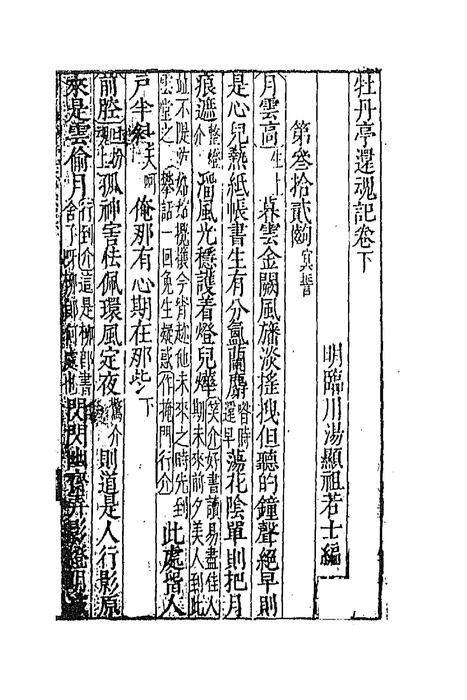 牡丹亭還魂記卷下
明臨川湯顯祖若士編
第叁拾貳齣冥誓
月雲高生上暮雲金闕風旛淡搖拽但聽的鐘聲絕早則
是心兒熱紙帳書生有分氳蘭麝喒時還早蕩花陰單則把月
痕遮介整燈溜風光穩護着燈兒燁笑介好書讀易盡佳人期未來前夕美人到此
並不隄防姑姑攪攘今宵趁他未來之時先到雲堂之上攀話一回免生疑惑作掩門行介此處留人
戶半斜天呵俺那有心期在那些下
前腔魂旦上孤神害怯佩環風定夜驚介則道是人行影原
來是雲偷月行到介這是柳郎書舍了呀柳郎何處也閃閃幽齋弄影燈明滅